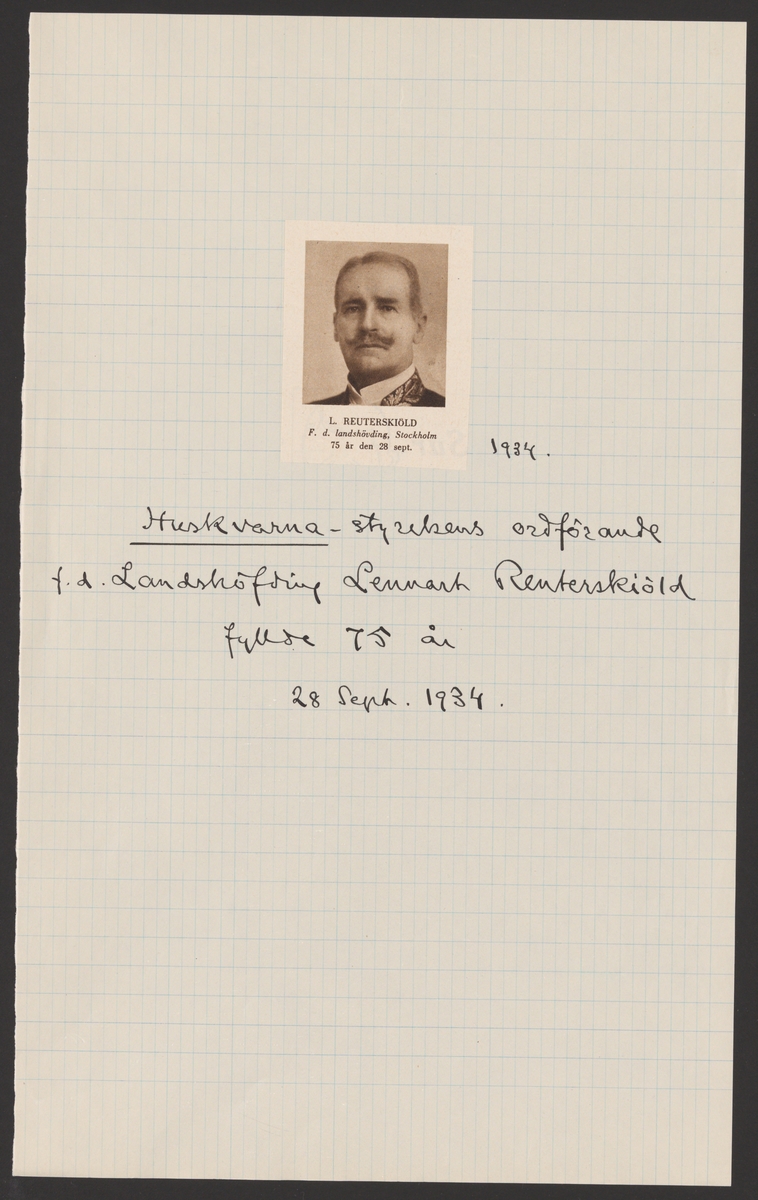 L. REUTERSKIÖLD
F. d. landshövding, Stockholm
75 år den 28 sept.
1934.
Huskvarna-styrelsens ordförande
f.d. Landshöfding Lennart Reuterskiöld
fyllde 75 år
28 Sept. 1934.